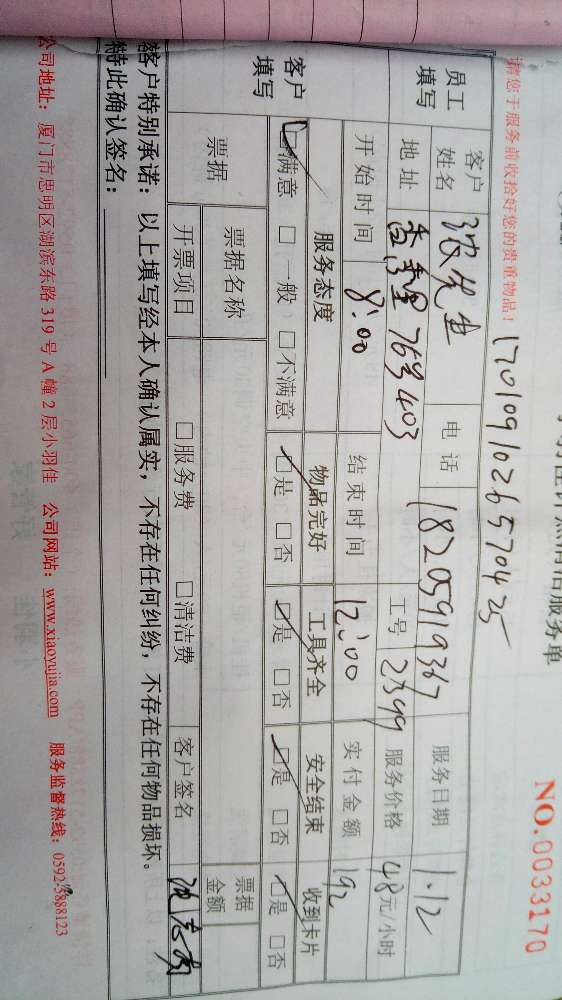 洁服务单
NO.0033170
1701091026570425
请您于服务前收拾好您的贵重物品！
员工填写
客户姓名 沈先生 电话 18205919367 服务日期 1.12
地址 769 403 工号 2399 服务价格 48元/小时
开始时间 8:00 结束时间 12:00 实付金额 192
客户填写
服务态度 物品完好 工具齐全 安全结束 收到卡片
☑满意 □一般 □不满意 ☑是 □否 ☑是 □否 ☑是 □否 ☑是 □否
票据 票据名称 票据金额
开票项目 □服务费 □清洁费 客户签名
客户特别承诺：以上填写经本人确认属实，不存在任何纠纷，不存在任何物品损坏。
特此确认签名：
公司地址：厦门市思明区湖滨东路 319 号 A 幢 2 层小羽佳 公司网站：www.xiaoyujia.com 服务监督热线：0592-5888123